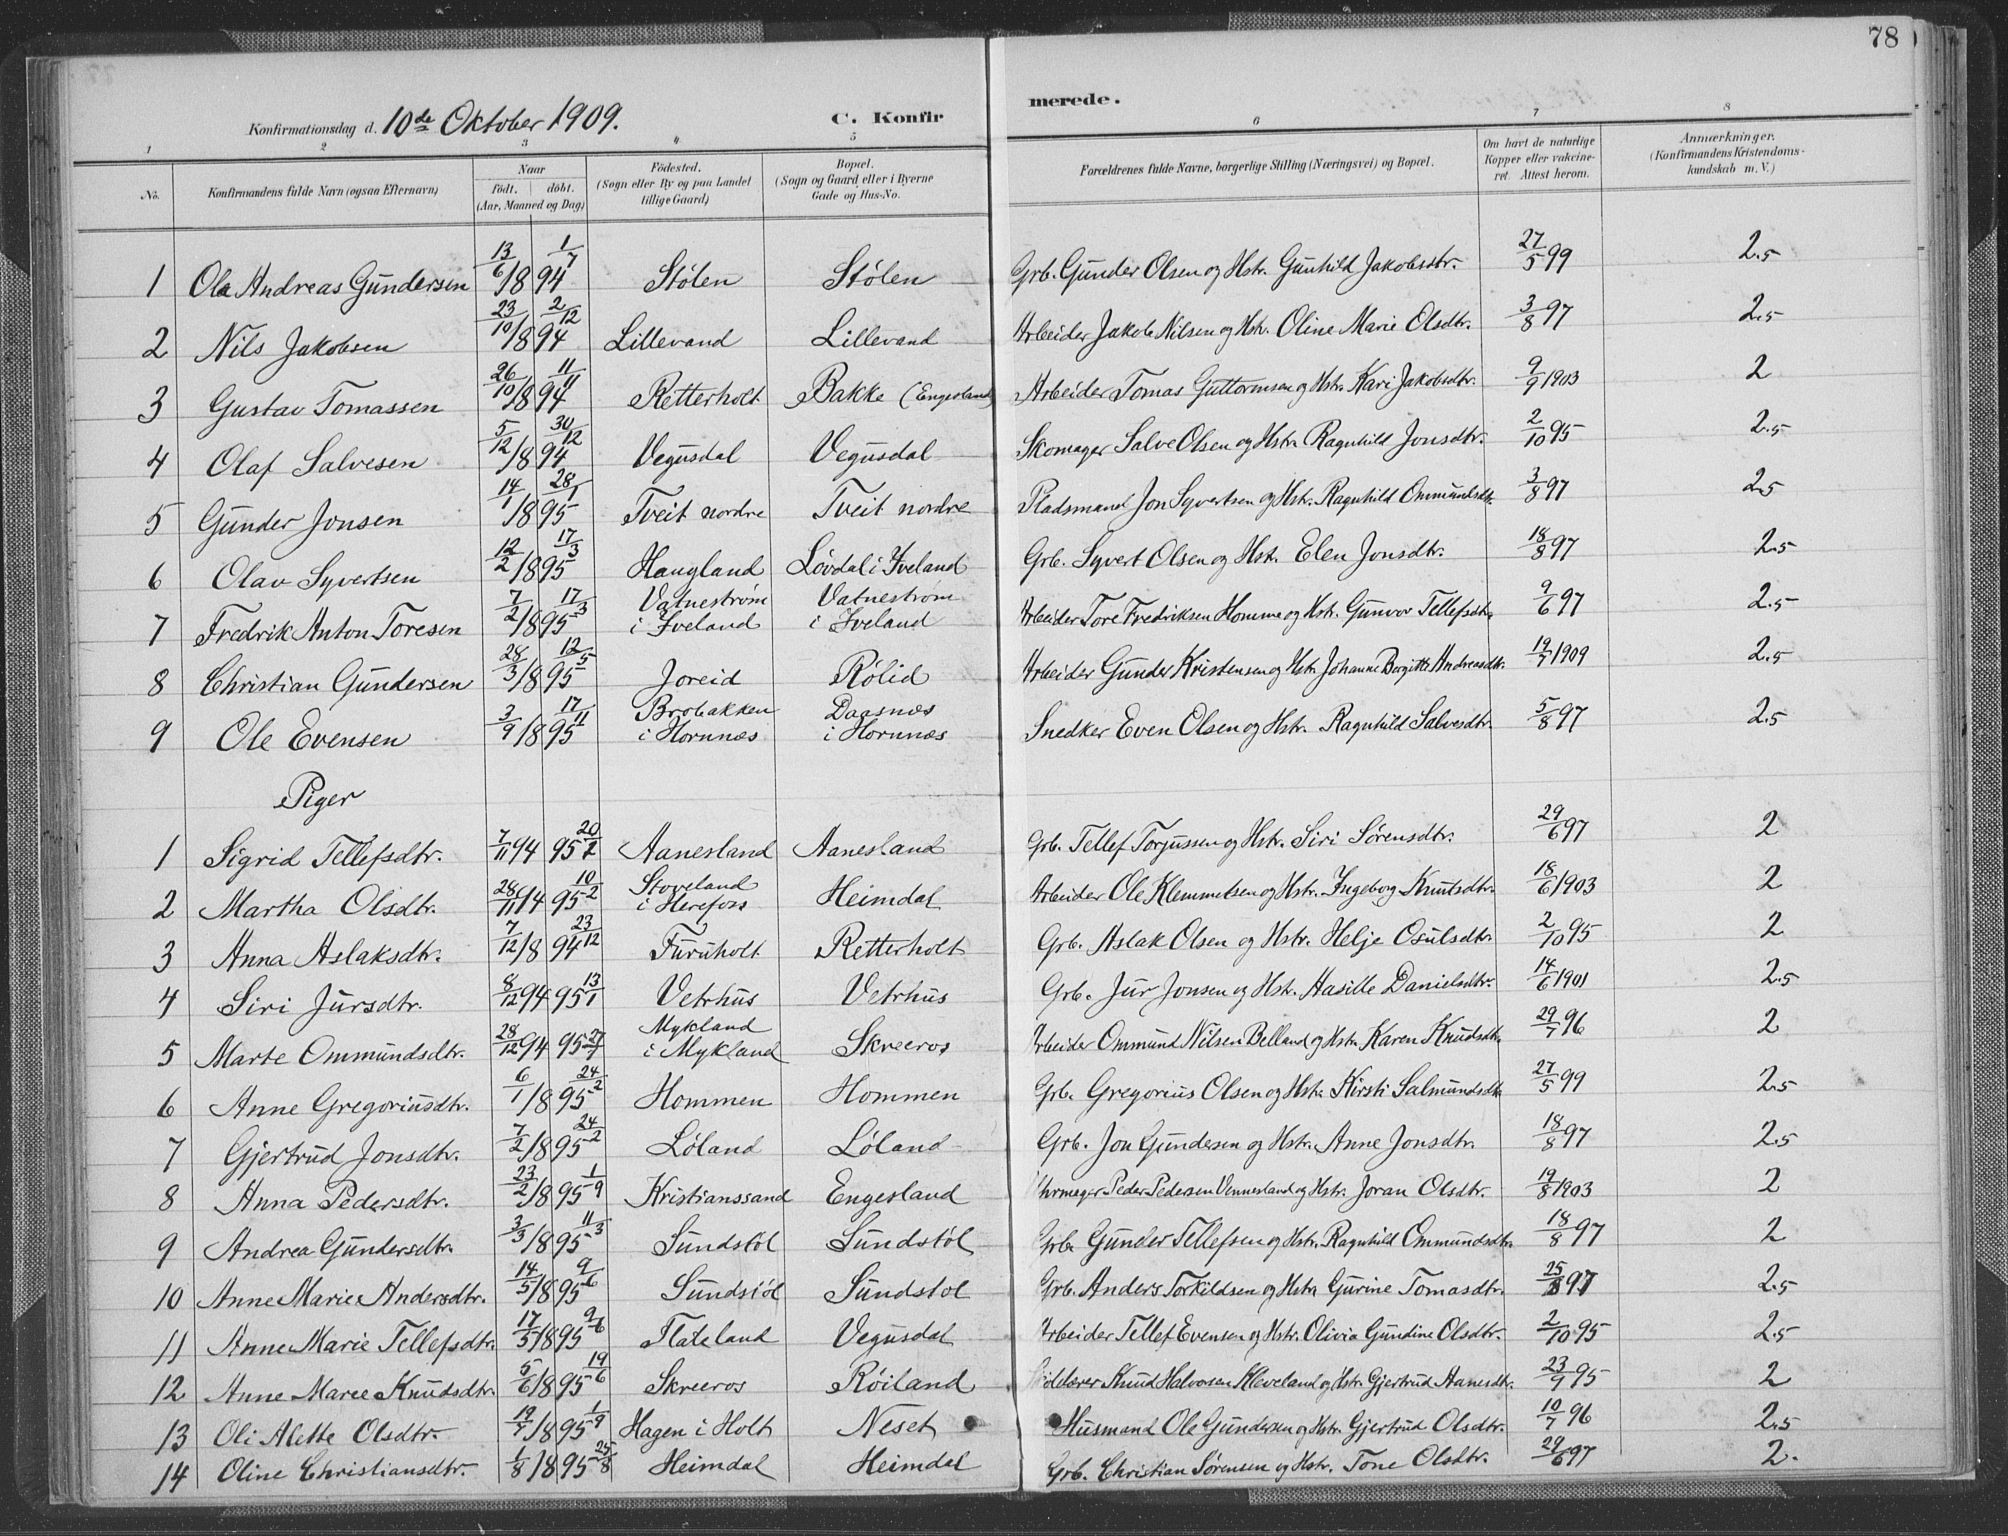 78
Konfirmationsdag d. 10de Oktober 1909. C. Konfirmerede.
1 2 3 4 5 6 7 8
No. Konfirmandens fulde Navn (ogsaa Efternavn) Naar født. døbt. (Aar, Maaned og Dag) Fødested. (Sogn eller By og paa Landet tillige Gaard) Bopæl. (Sogn og Gaard eller i Byerne Gade og Hus-No. Forældrenes fulde Navne, borgerlige Stilling (Næringsvei) og Bopæl. Om havt de naturlige Kopper eller vakcineret. Attest herom. Anmærkninger. (Konfirmandens Kristendomskundskab m. V.)
1 Ola Andreas Gundersen 13/6 1/7 1894 Stølen Stølen Grb. Gunder Olsen og Hstr. Gunhild Jakobsdtr. 27/5 99 2.5
2 Nils Jakobsen 23/10 2/12 1894 Lillevand Lillevand Arbeider Jakob Nilsen og Hstr. Oline Marie Olsdtr. 3/8 97 2.5
3 Gustav Tomassen 26/10 11/11 1894 Retterholt Bakke (Engesland) Arbeider Tomas Guttormsen og Hstr. Kari Jakobsdtr. 9/9 1903 2
4 Olaf Salvesen 5/12 30/12 1894 Vegusdal Vegusdal Skomager Salve Olsen og Hstr. Ragnhild Jonsdtr. 2/10 95 2.5
5 Gunder Jonsen 14/1 28/1 1895 Tveit nordre Tveit nordre Pladsmand Jon Syvertsen og Hstr. Ragnhild Ommundsdtr. 3/8 97 2.5
6 Olav Syvertsen 12/2 17/3 1895 Haugland Løvdal i Iveland Grb. Syvert Olsen og Hstr. Elen Jonsdtr. 18/8 97 2.5
7 Fredrik Anton Toresen 7/2 17/3 1895 Vatnestrøm i Iveland Vatnestrøm i Iveland Arbeider Tore Fredriksen Homme og Hstr. Gunvor Tellefsdtr. 9/6 97 2.5
8 Christian Gundersen 28/3 12/5 1895 Joreid Rølid Arbeider Gunder Kristensen og Hstr. Johanne Birgitte Andreasdtr. 19/7 1909 2.5
9 Ole Evensen 3/9 17/11 1895 Brobakken i Hornnæs Daasnæs i Hornnæs Snedker Even Olsen og Hstr. Ragnhild Salvesdtr. 5/8 97 2.5
Piger
1 Sigrid Tellefsdtr. 7/11 94 95 20/2 Aanesland Aanesland Grb. Tellef Torjussen og Hstr. Siri Sørensdtr. 29/6 97 2
2 Martha Olsdtr. 28/11 94 95 10/2 Stoveland i Herefos Heimdal Arbeider Ole Klemmetsen og Hstr. Ingeborg Knutsdtr. 18/6 1903 2
3 Anna Aslaksdtr. 7/12 1894 23/12 Furuholt Retterholt Grb. Aslak Olsen og Hstr. Helje Osulsdtr. 2/10 95 2
4 Siri Jursdtr. 8/12 94 95 13/1 Vetrhus Vetrhus Grb. Jur Jonsen og Hstr. Hasille Danielsdtr. 14/6 1901 2.5
5 Marte Ommundsdtr. 28/12 94 95 27/1 Mykland i Mykland Skreeros Arbeider Ommund Nilsen Belland og Hstr. Karen Knudsdtr. 29/7 96 2
6 Anne Gregoriusdtr. 6/1 1895 24/2 Hommen Hommen Grb. Gregorius Olsen og Hstr. Kirsti Salmundsdtr. 27/5 99 2.5
7 Gjertrud Jonsdtr. 7/2 1895 24/2 Løland Løland Grb. Jon Gundesen og Hstr. Anne Jonsdtr. 18/8 97 2.5
8 Anna Pedersdtr. 23/2 1895 1/9 Kristianssand Engesland Uhrmager Peder Pedersen Vennesland og Hstr. Joran Olsdtr. 19/8 1903 2
9 Andrea Gundersdtr. 3/3 1895 11/3 Sundstøl Sundstøl Grb. Gunder Tellefsen og Hstr. Ragnhild Ommundsdtr. 18/8 97 2
10 Anne Marie Andersdtr. 14/5 1895 9/6 Sundstøl Sundstøl Grb. Anders Torkildsen og Hstr. Gurine Tomasdtr. 25/8 97 2.5
11 Anne Marie Tellefsdtr. 17/5 1895 9/6 Flateland Vegusdal Arbeider Tellef Evensen og Hstr. Olivia Gundine Olsdtr. 2/10 95 2.5
12 Anne Marie Knudsdtr. 5/6 1895 19/6 Skreeros Røiland Knud Halvorsen Kleveland og Hstr. Gjertrud Aanesdtr. 23/9 95 2
13 Oli Alette Olsdtr. 19/7 1895 1/9 Hagen i Holt Neset Husmand Ole Gundersen og Hstr. Gjertrud Olsdtr. 10/7 96 2.5
14 Oline Christiansdtr. 1/8 1895 25/8 Heimdal Heimdal Grb. Christian Sørensen og Hstr. Tone Olsdtr. 29/6 97 2.